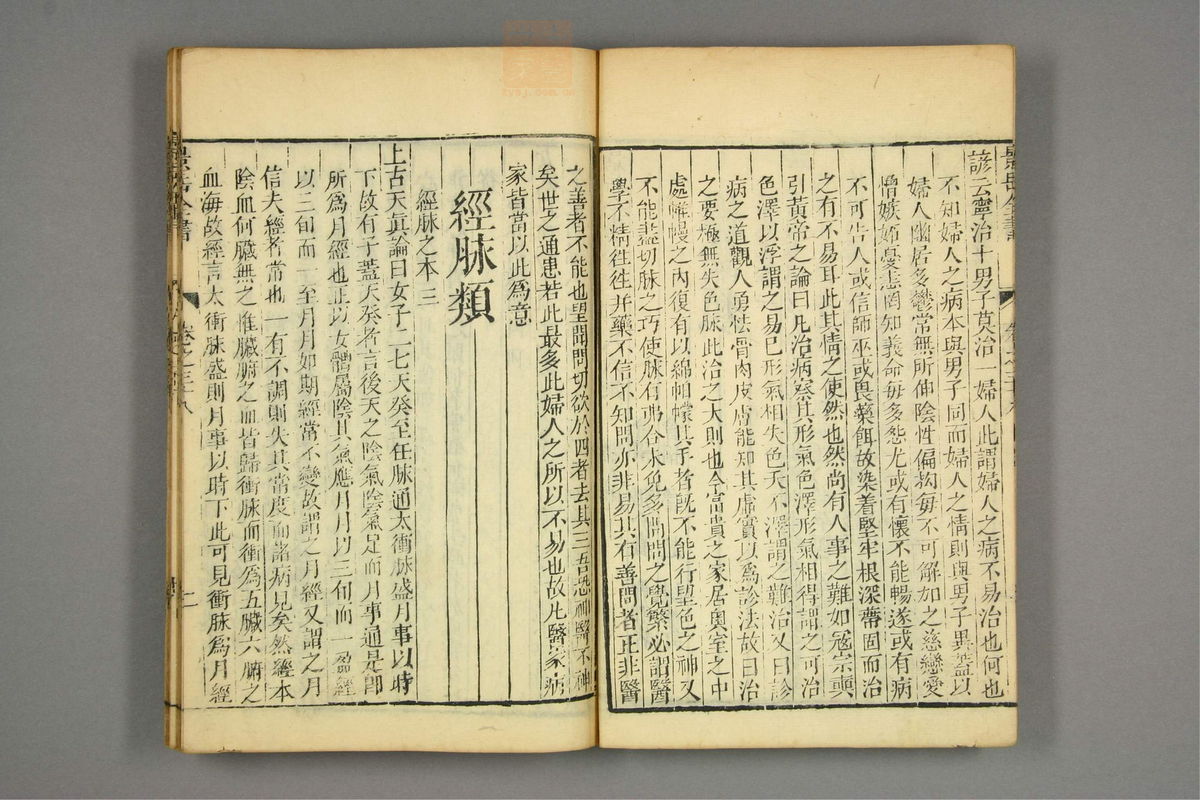 諺云寧治十男子莫治一婦人此謂婦人之病不易治也何也
不知婦人之病本與男子同而婦人之情則與男子異葢以
婦人幽居多鬱常無所伸陰性偏拗每不可解加之慈戀愛
憎嫉妬憂恚罔知義命每多怨尤或有懷不能暢遂或有病
不可告人或信師巫或畏藥餌故染着堅牢根深蔕固而治
之有不易耳此其情之使然也然尚有人事之難如寇宗奭
引黃帝之論曰凡治病察其形氣色澤形氣相得謂之可治
色澤以浮謂之易已形氣相失色夭不澤謂之難治又曰診
病之道觀人勇怯骨肉皮膚能知其虛實以為診法故曰治
之要極無失色脉此治之大則也今富貴之家居奧室之中
處帷幔之內復有以綿帕幪其手者旣不能行望色之神又
不能盡切脉之巧使脉有弗合未免多問問之覺繁必謂醫
學不精往徃并藥不信不知問亦非易其有善問者正非醫
之善者不能也望聞問切欲於四者去其三吾恐神醫不神
矣世之通患若此最多此婦人之所以不易也故凡醫家病
家皆當以此爲意
經脉類
經脉之本 三
上古天眞論曰女子二七天癸至任脉通太衝脉盛月事以時
下故有子蓋天癸者言後天之陰氣陰氣足而月事通是卽
所爲月經也正以女體屬陰其氣應月月以三旬而一盈經
以三旬而一至月月如期經常不變故謂之月經又謂之月
信夫經者常也一有不調則失其常度而諸病見矣然經本
陰血何臟無之惟臟腑之血皆歸衝脉而衝爲五臟六腑之
血海故經言太衝脉盛則月事以時下此可見衝脉爲月經
景岳全書
卷之三十八
二
tysj.com.cn